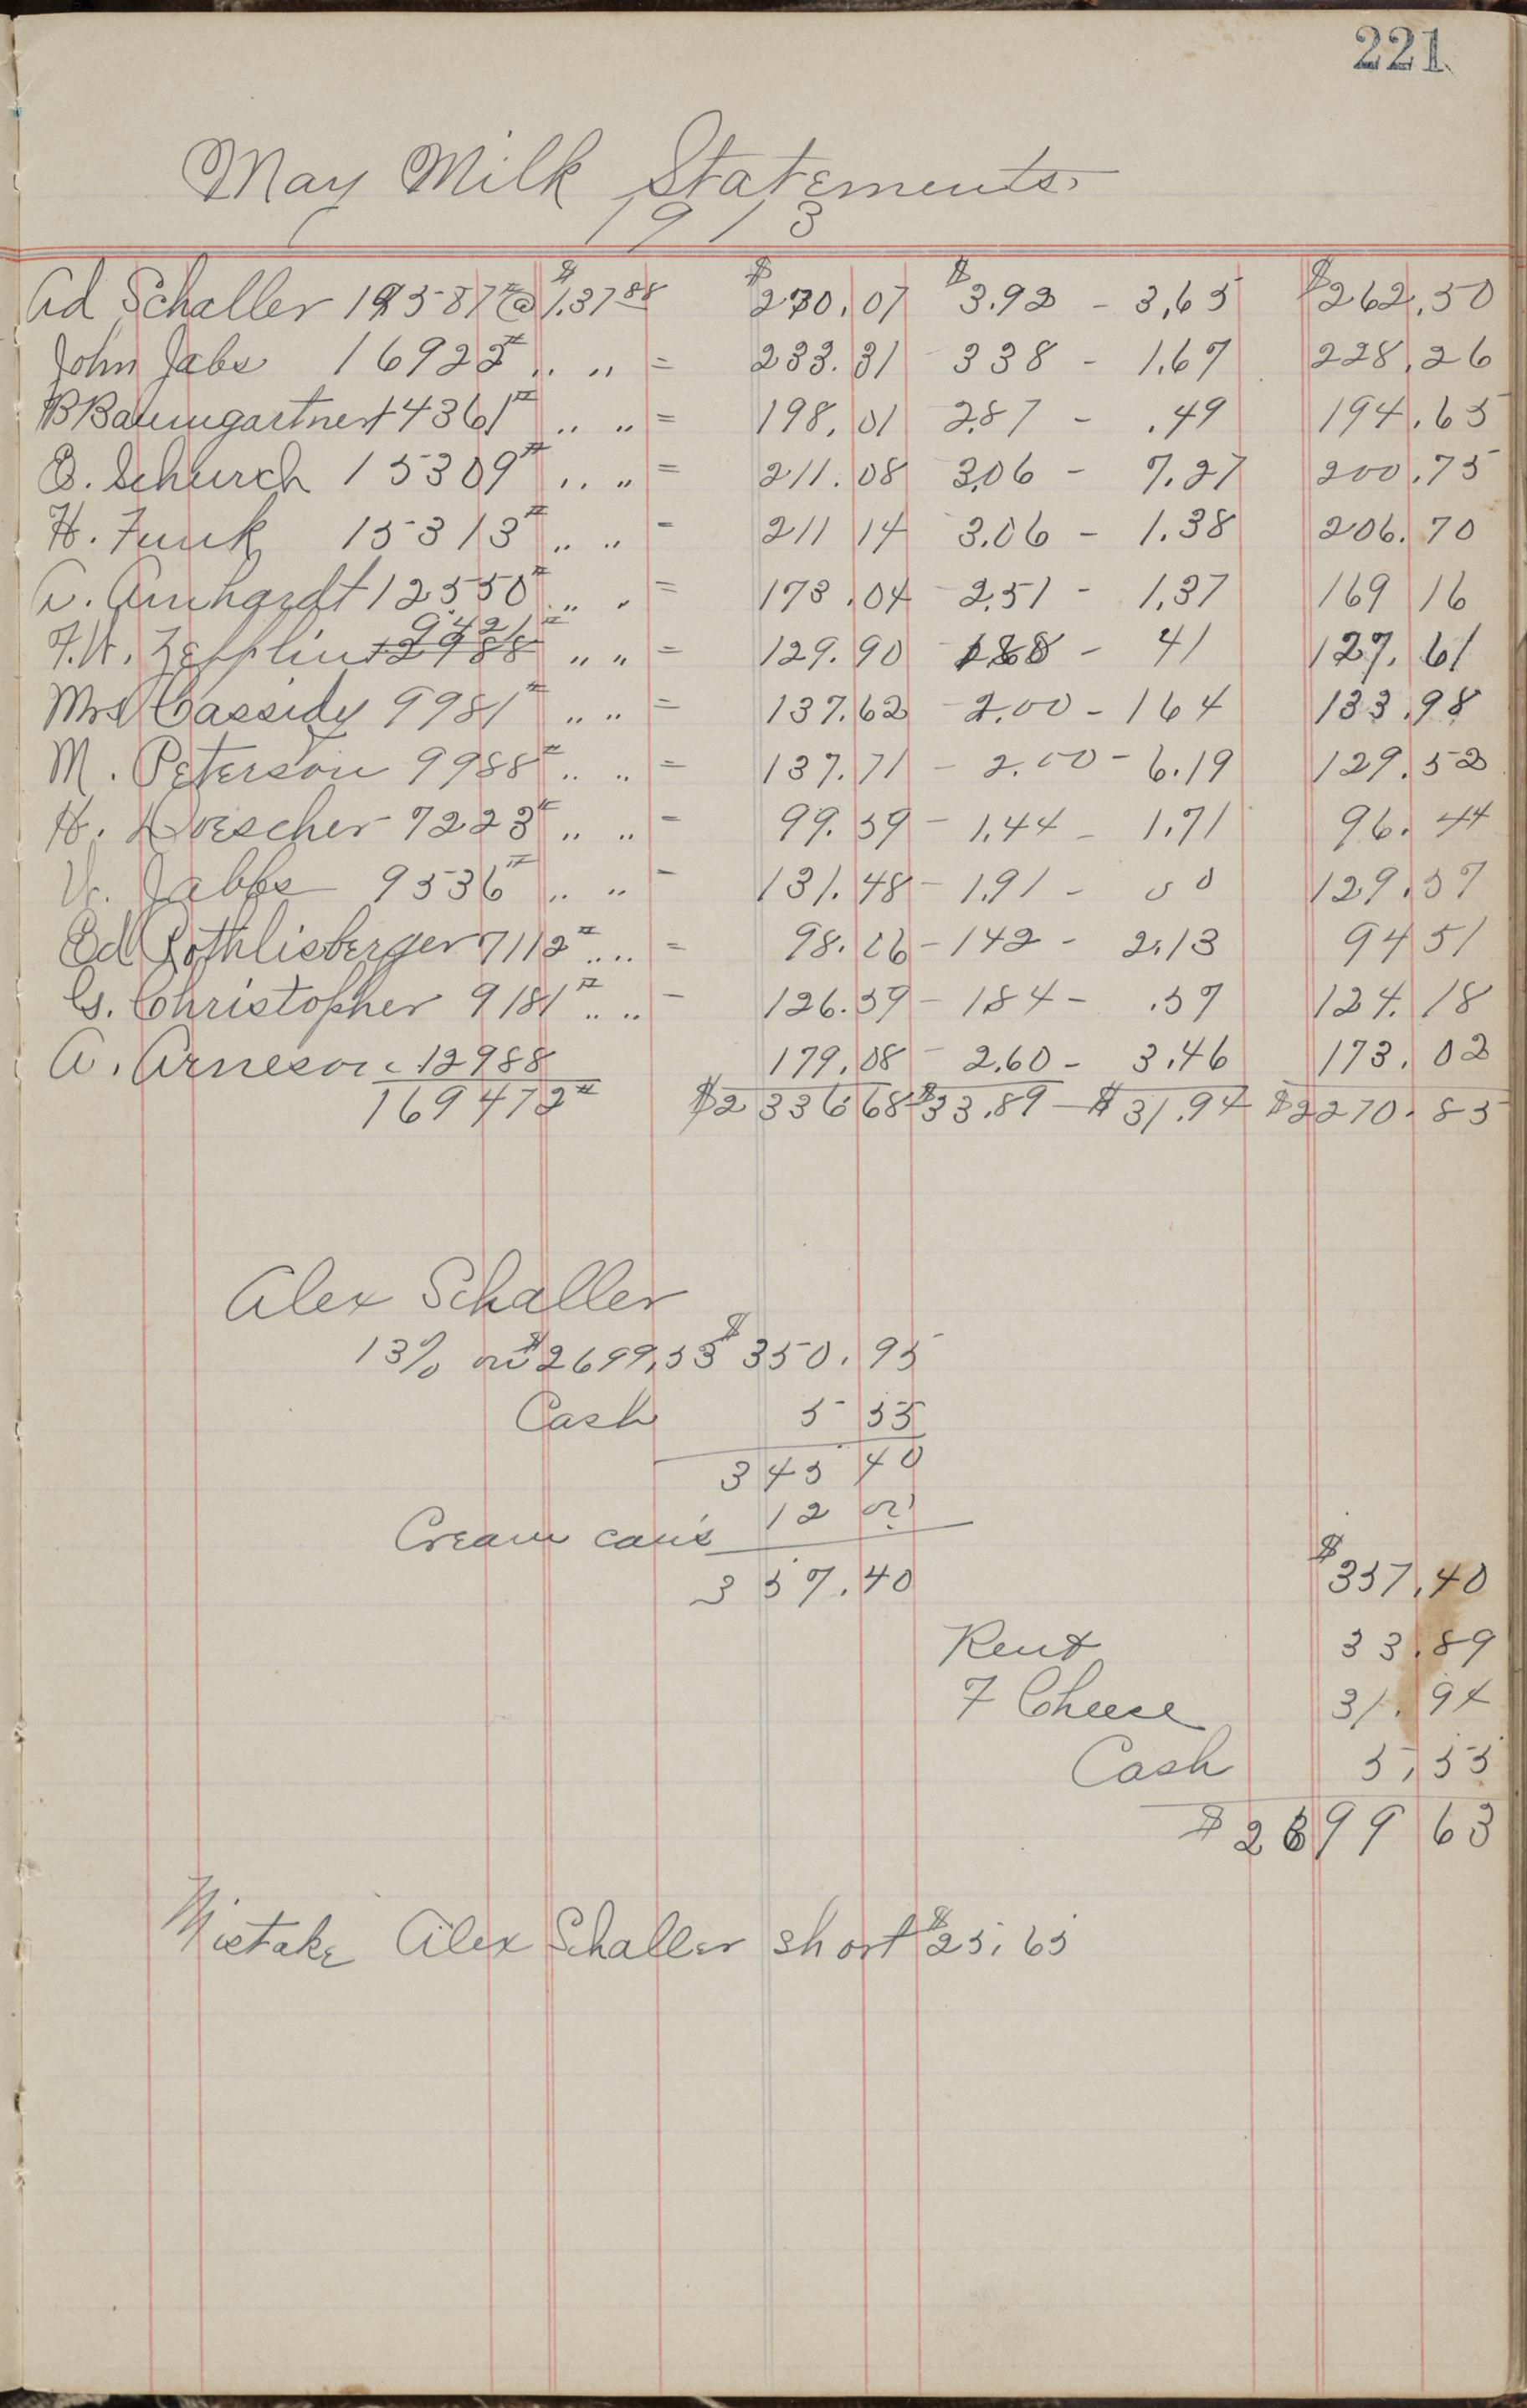 221
May Milk Statements
1913
Ad Schaller 19587# @ $1.37 88 $270.07 $3.92 - 3.65 $262.50
John Jabs 16922# .. .. = 233.31 338 - 1.67 228.26
B Baumgartner 14361# .. .. = 198.01 2.87 - .49 194.65
E. Schurch 15309# .. .. = 211.08 3.06 - 7.27 200.75
H. Funk 15313# .. .. - 211 14 3.06 - 1.38 206.70
A. Amhardt 12550# .. .. = 173.04 - 2.51 - 1.37 169 16
9421#
F.W. Zepplin 12988 .. .. = 129.90 - 188 - 41 127.61
Mrs Cassidy 9981# .. .. = 137.62 - 2.00 - 164 133.98
M. Peterson 9988# .. .. = 137.71 - 2.00 - 6.19 129.52
H. Doescher 7223# .. .. - 99.59 - 1.44 - 1.71 96.44
W. Jabbs 9536# .. .. - 131.48 - 1.91 - 00 129.57
Ed Rothlisberger 7112# .... = 98.06 - 142 - 2.13 94 51
G. Christopher 9181# .. .. - 126.59 - 184 - .57 124.18
A. Arneson 12988 179.08 - 2.60 - 3.46 173.02
169472# $2336.68 - $33.89 - $31.94 $2270.85
Alex Schaller
13% on $2699.53 $350.95
Cash 5 55
345 40
Cream cans 12 00
357.40 $357.40
Rent 33.89
7 Cheese 31.94
Cash 5.55
$2699 63
Mistake Alex Schaller short $25.65